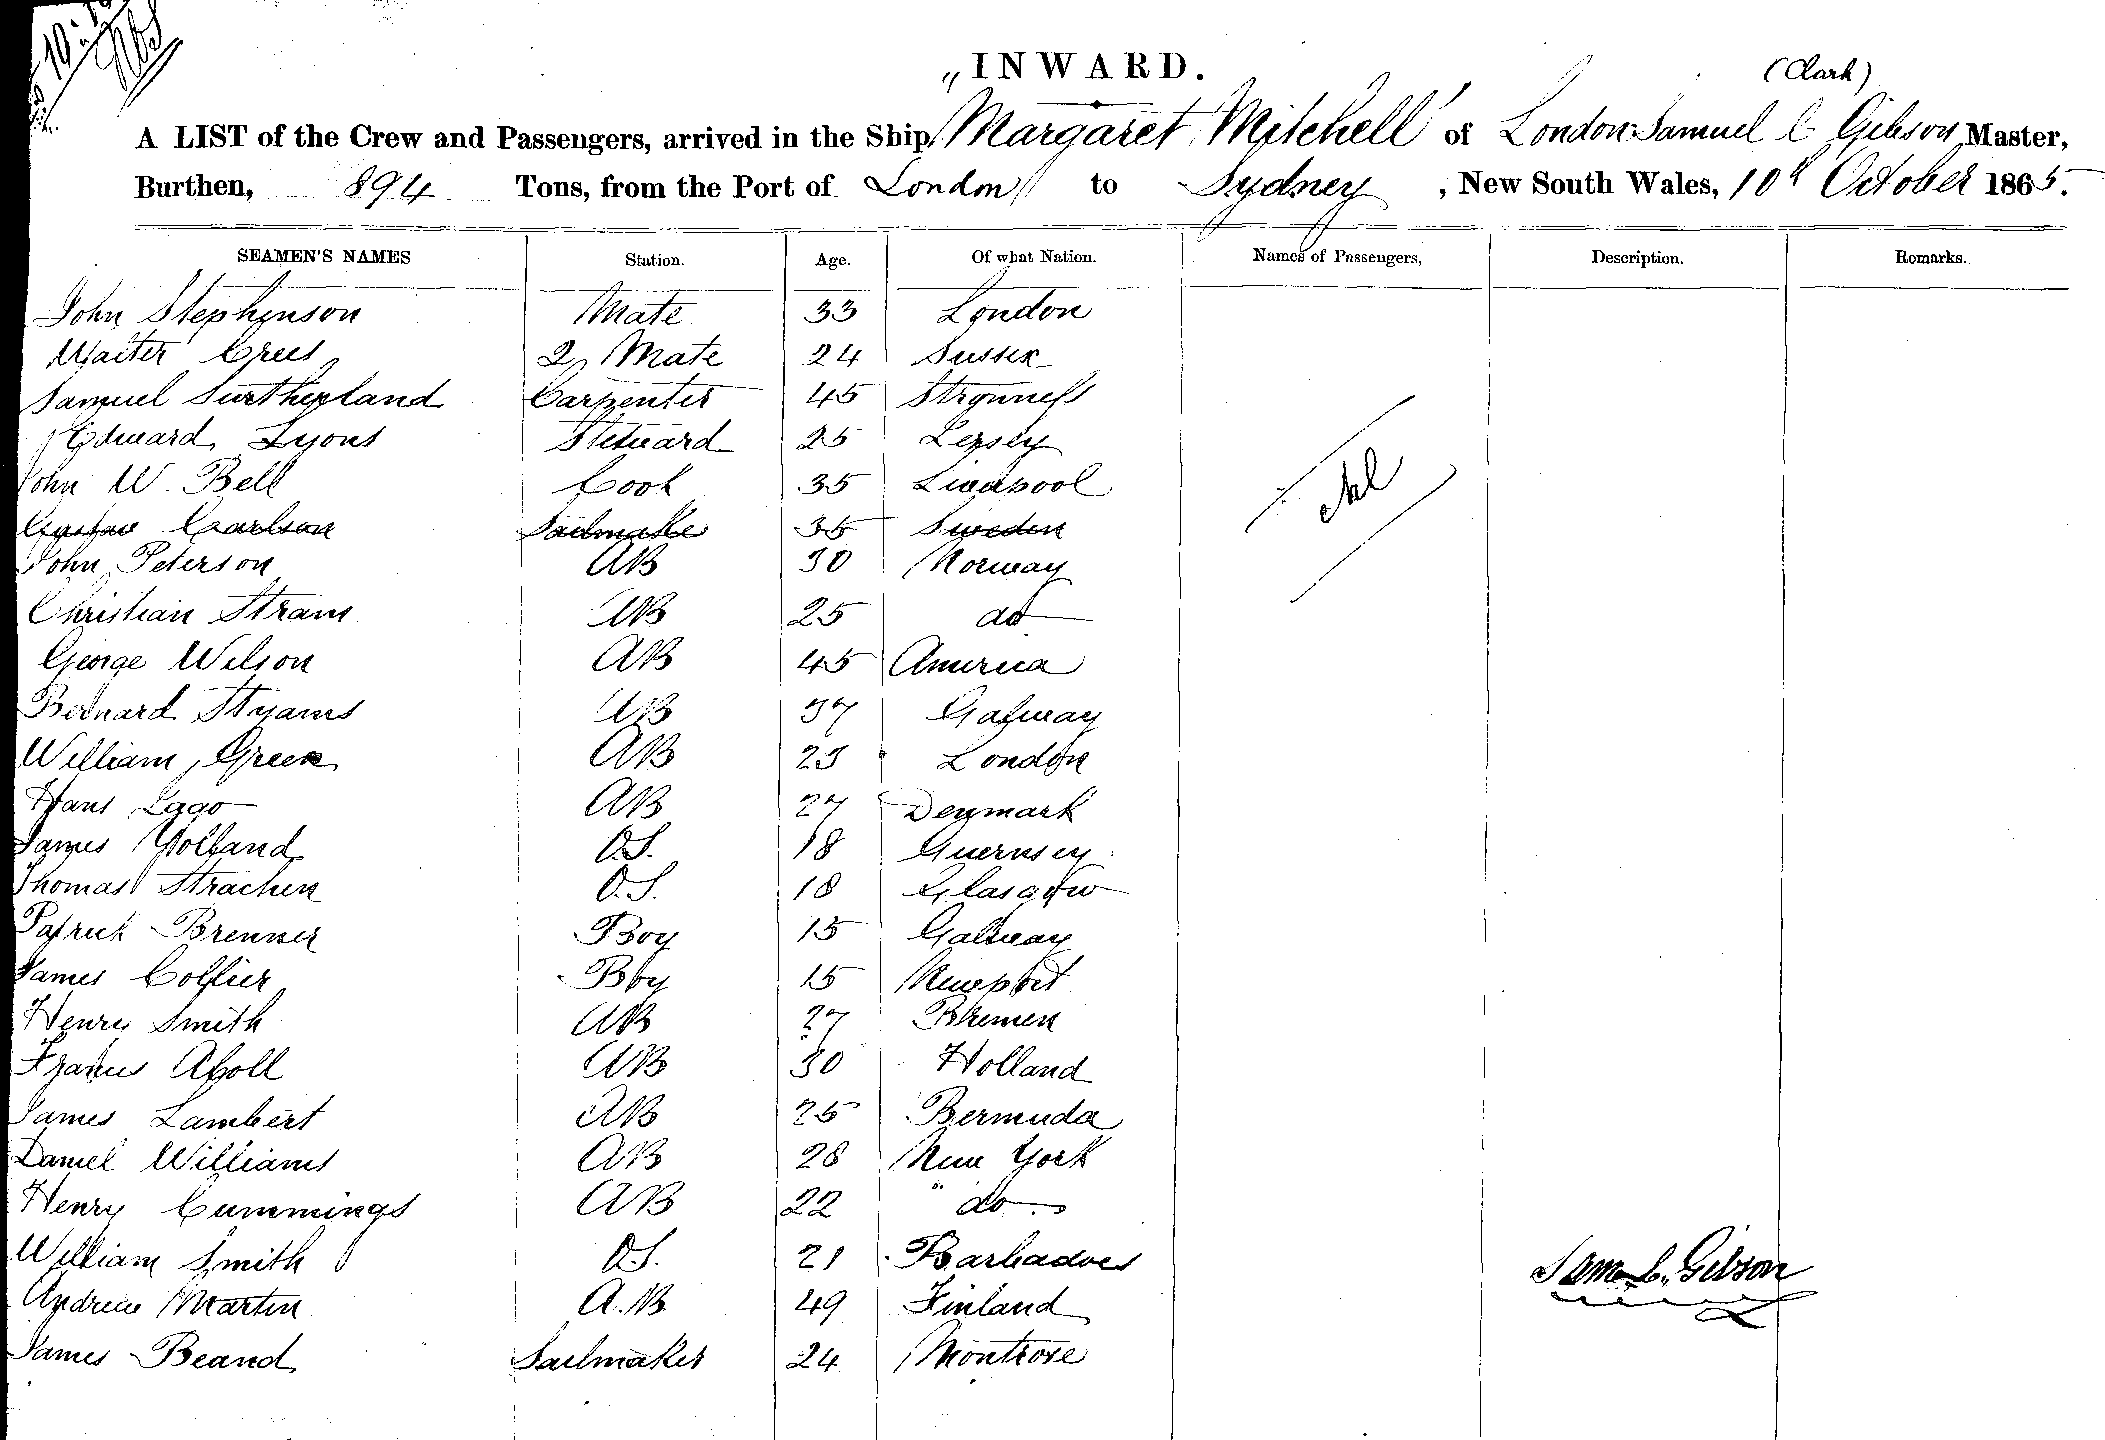 "INWARD.
(Clark)
A LIST of the Crew and Passengers, arrived in the Ship Margaret Mitchell of London Samuel C Gibson Master,
Burthen, 894 Tons, from the Port of London to Sydney, New South Wales, 10th October 1865.
SEAMEN'S NAMES Station. Age. Of what Nation. Names of Passengers, Description. Remarks.
John Stephenson Mate 33 London
Walter Crees 2 Mate 24 Sussex
Samuel Surtherland Carpenter 45 Stromness
Edward Lyons Steward 25 Jersey
John W. Bell Cook 35 Liverpool
Nil
Gustav Carlson Sailmaker 35 Sweden
John Peterson AB 30 Norway
Christian Stram AB 25 do
George Wilson AB 45 America
Bernard Styams AB 37 Galway
William Green AB 23 London
Hans Lago AB 27 Denmark
James Yolland O.S. 18 Guernsey
Thomas Strachen O.S. 18 Glasgow
Patrick Brenner Boy 15 Galway
James Collier Boy 15 Newport
Henry Smith AB 27 Bremen
Francis Aboll AB 30 Holland
James Lambert AB 25 Bermuda
Daniel Williams AB 28 New York
Henry Cummings AB 22 " do
William Smith O.S. 21 Barbadoes
Saml C. Gibson
Andrew Martin A.B 49 Finland
James Beand Sailmaker 24 Montrose